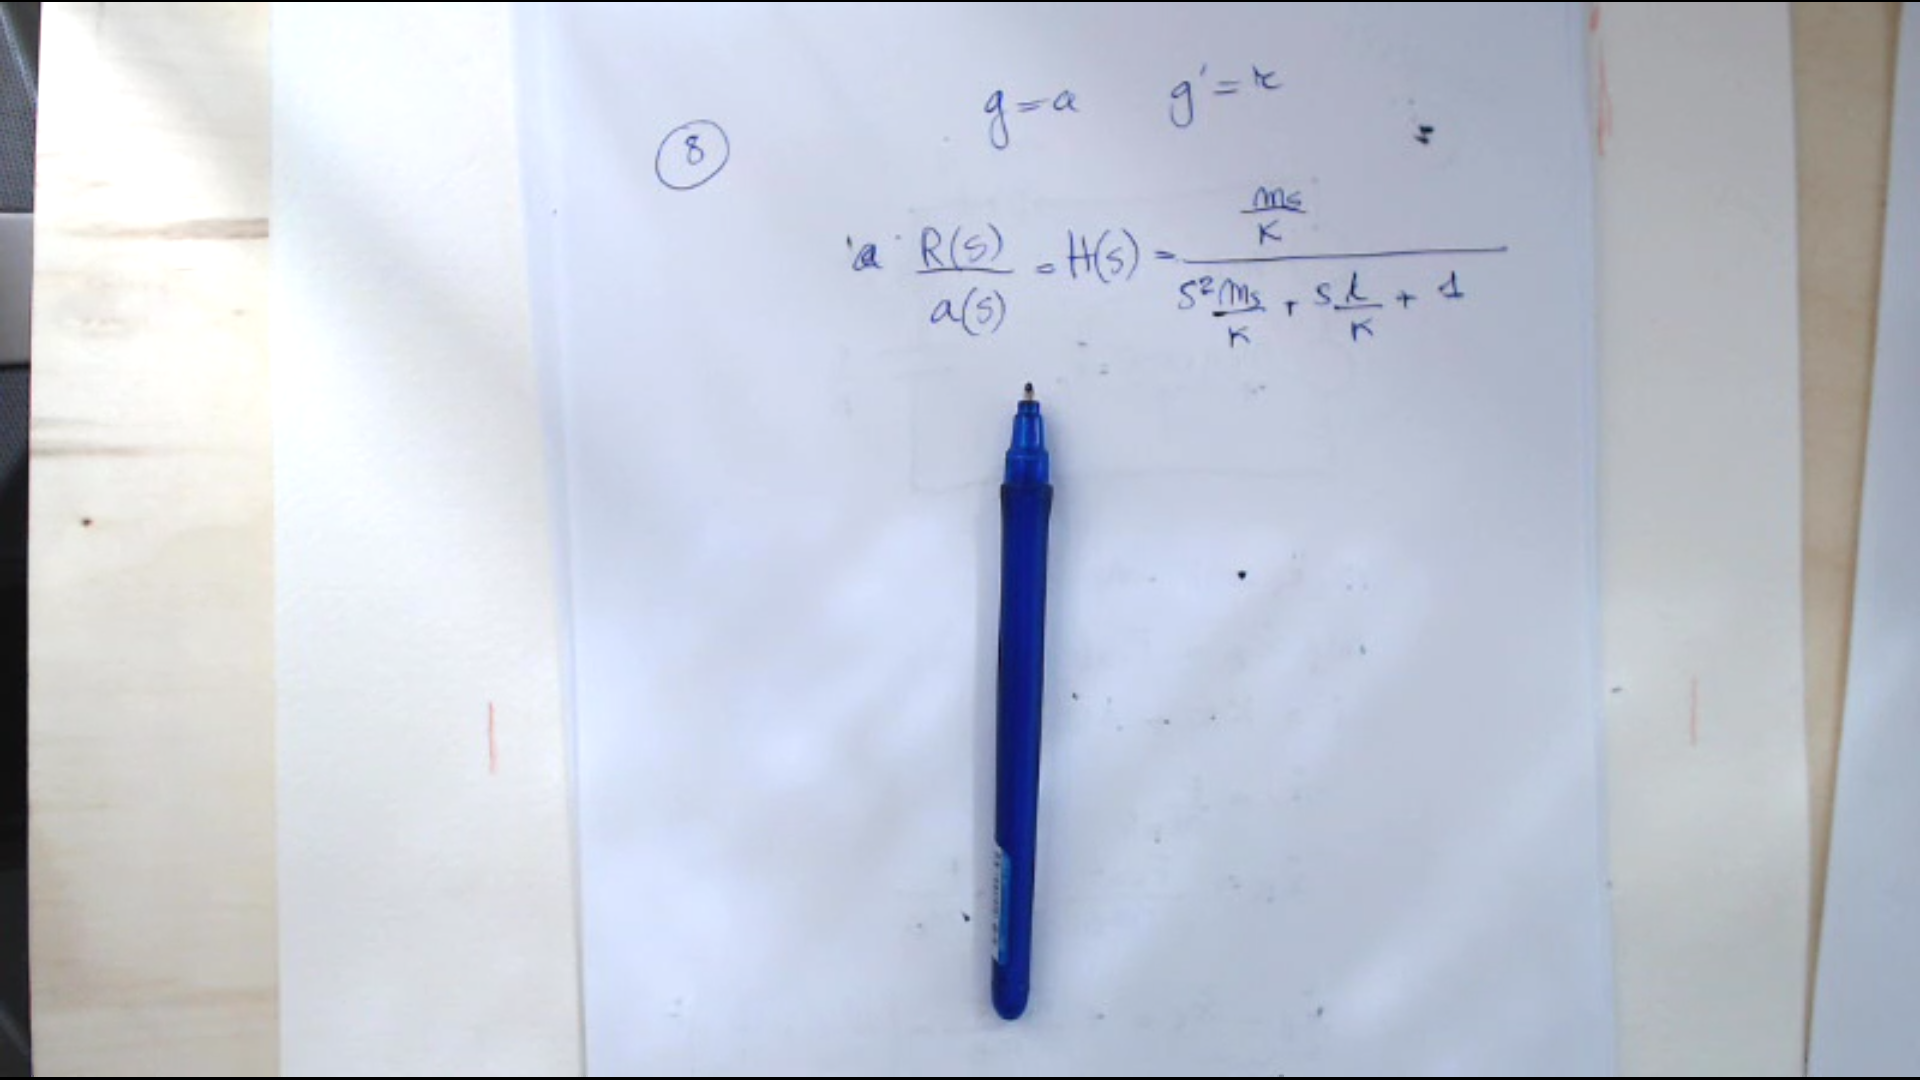 g=a g'=r
8
a R(s)/a(s) = H(s) = (ms/K)/(s² ms/K + s l/K + 1)